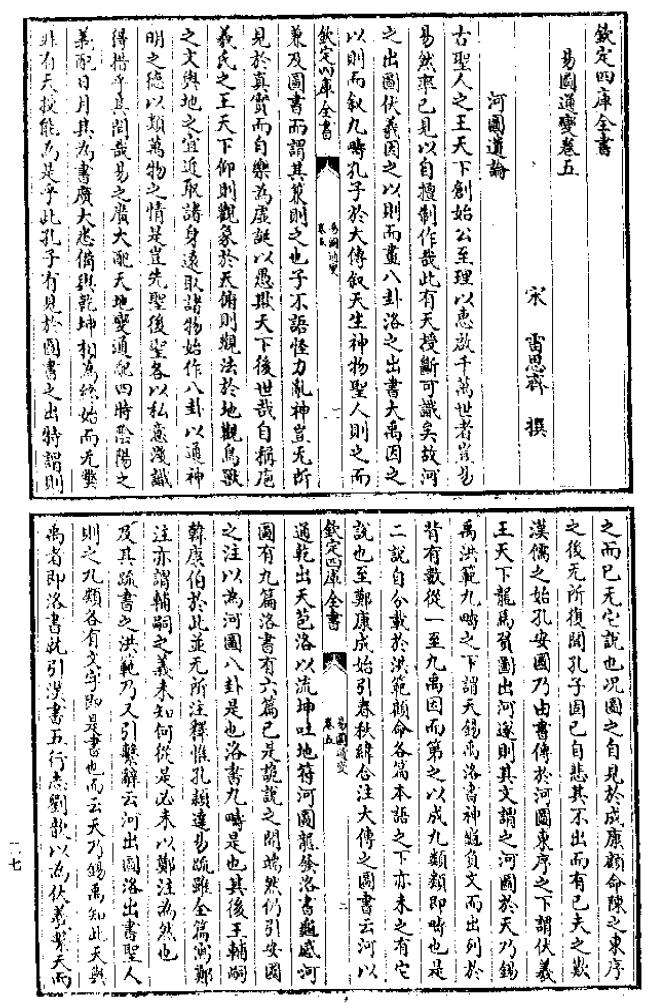 欽定四庫全書
易圖通變卷五
宋 雷思齊 撰
河圖遺論
古聖人之王天下創始公至理以惠啟千萬世者豈易
易然率已見以自擅制作哉此有天授斷可識矣故河
之出圖伏羲因之以則而畫八卦洛之出書大禹因之
以則而叙九疇孔子於大傳叙天生神物聖人則之而
欽定四庫全書
易圖通變
卷五
一
兼及圖書而謂其兼則之也子不語怪力亂神豈无所
見於真實而自樂為虛誕以愚欺天下後世哉自稱庖
羲氏之王天下仰則觀象於天俯則觀法於地觀鳥獸
之文與地之宜近取諸身遠取諸物始作八卦以通神
明之德以類萬物之情是豈先聖後聖各以私意淺識
得措乎其間哉易之廣大配天地變通配四時陰陽之
義配日月其為書廣大悉備與乾坤相為終始而无弊
非有天授能為是乎此孔子有見於圖書之出特謂則
之而已无它說也况圖之自見於成康顧命陳之東序
之後无所復聞孔子固已自悲其不出而有已夫之歎
漢儒之始孔安國乃由書傳於河圖東序之下謂伏羲
王天下龍馬負圖出河遂則其文謂之河圖於天乃錫
禹洪範九疇之下謂天錫禹洛書神龜負文而出列於
背有數從一至九禹因而第之以成九類類即疇也是
二說自分載於洪範顧命各篇本語之下亦未之有它
說也至鄭康成始引春秋緯合注大傳之圖書云河以
欽定四庫全書
易圖通變
卷五
二
通乾出天苞洛以流坤吐地符河圖龍發洛書龜感河
圖有九篇洛書有六篇已是詭說之開端然仍引安國
之注以為河圖八卦是也洛書九疇是也其後王輔嗣
韓康伯於此並无所注釋惟孔穎達易疏雖全篇寫鄭
注亦謂輔嗣之義未知何從是必未以鄭注為然也
及其疏書之洪範乃又引繫辭云河出圖洛出書聖人
則之九類各有文字即是書也而云天乃錫禹知此天與
禹者即洛書就引漢書五行志劉歆以為伏羲繫天而
一七